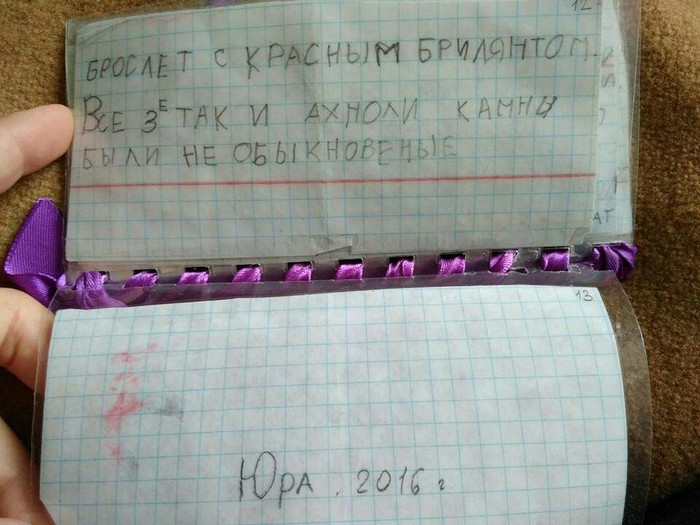 12
БРОСЛЕТ С КРАСНЫМ БРИЛЯНТОМ
ВСЕ ЗЕ ТАК И АХНОЛИ КАМНИ
БЫЛИ НЕ ОБЫКНОВЕНЫЕ
13
ЮРА . 2016 г